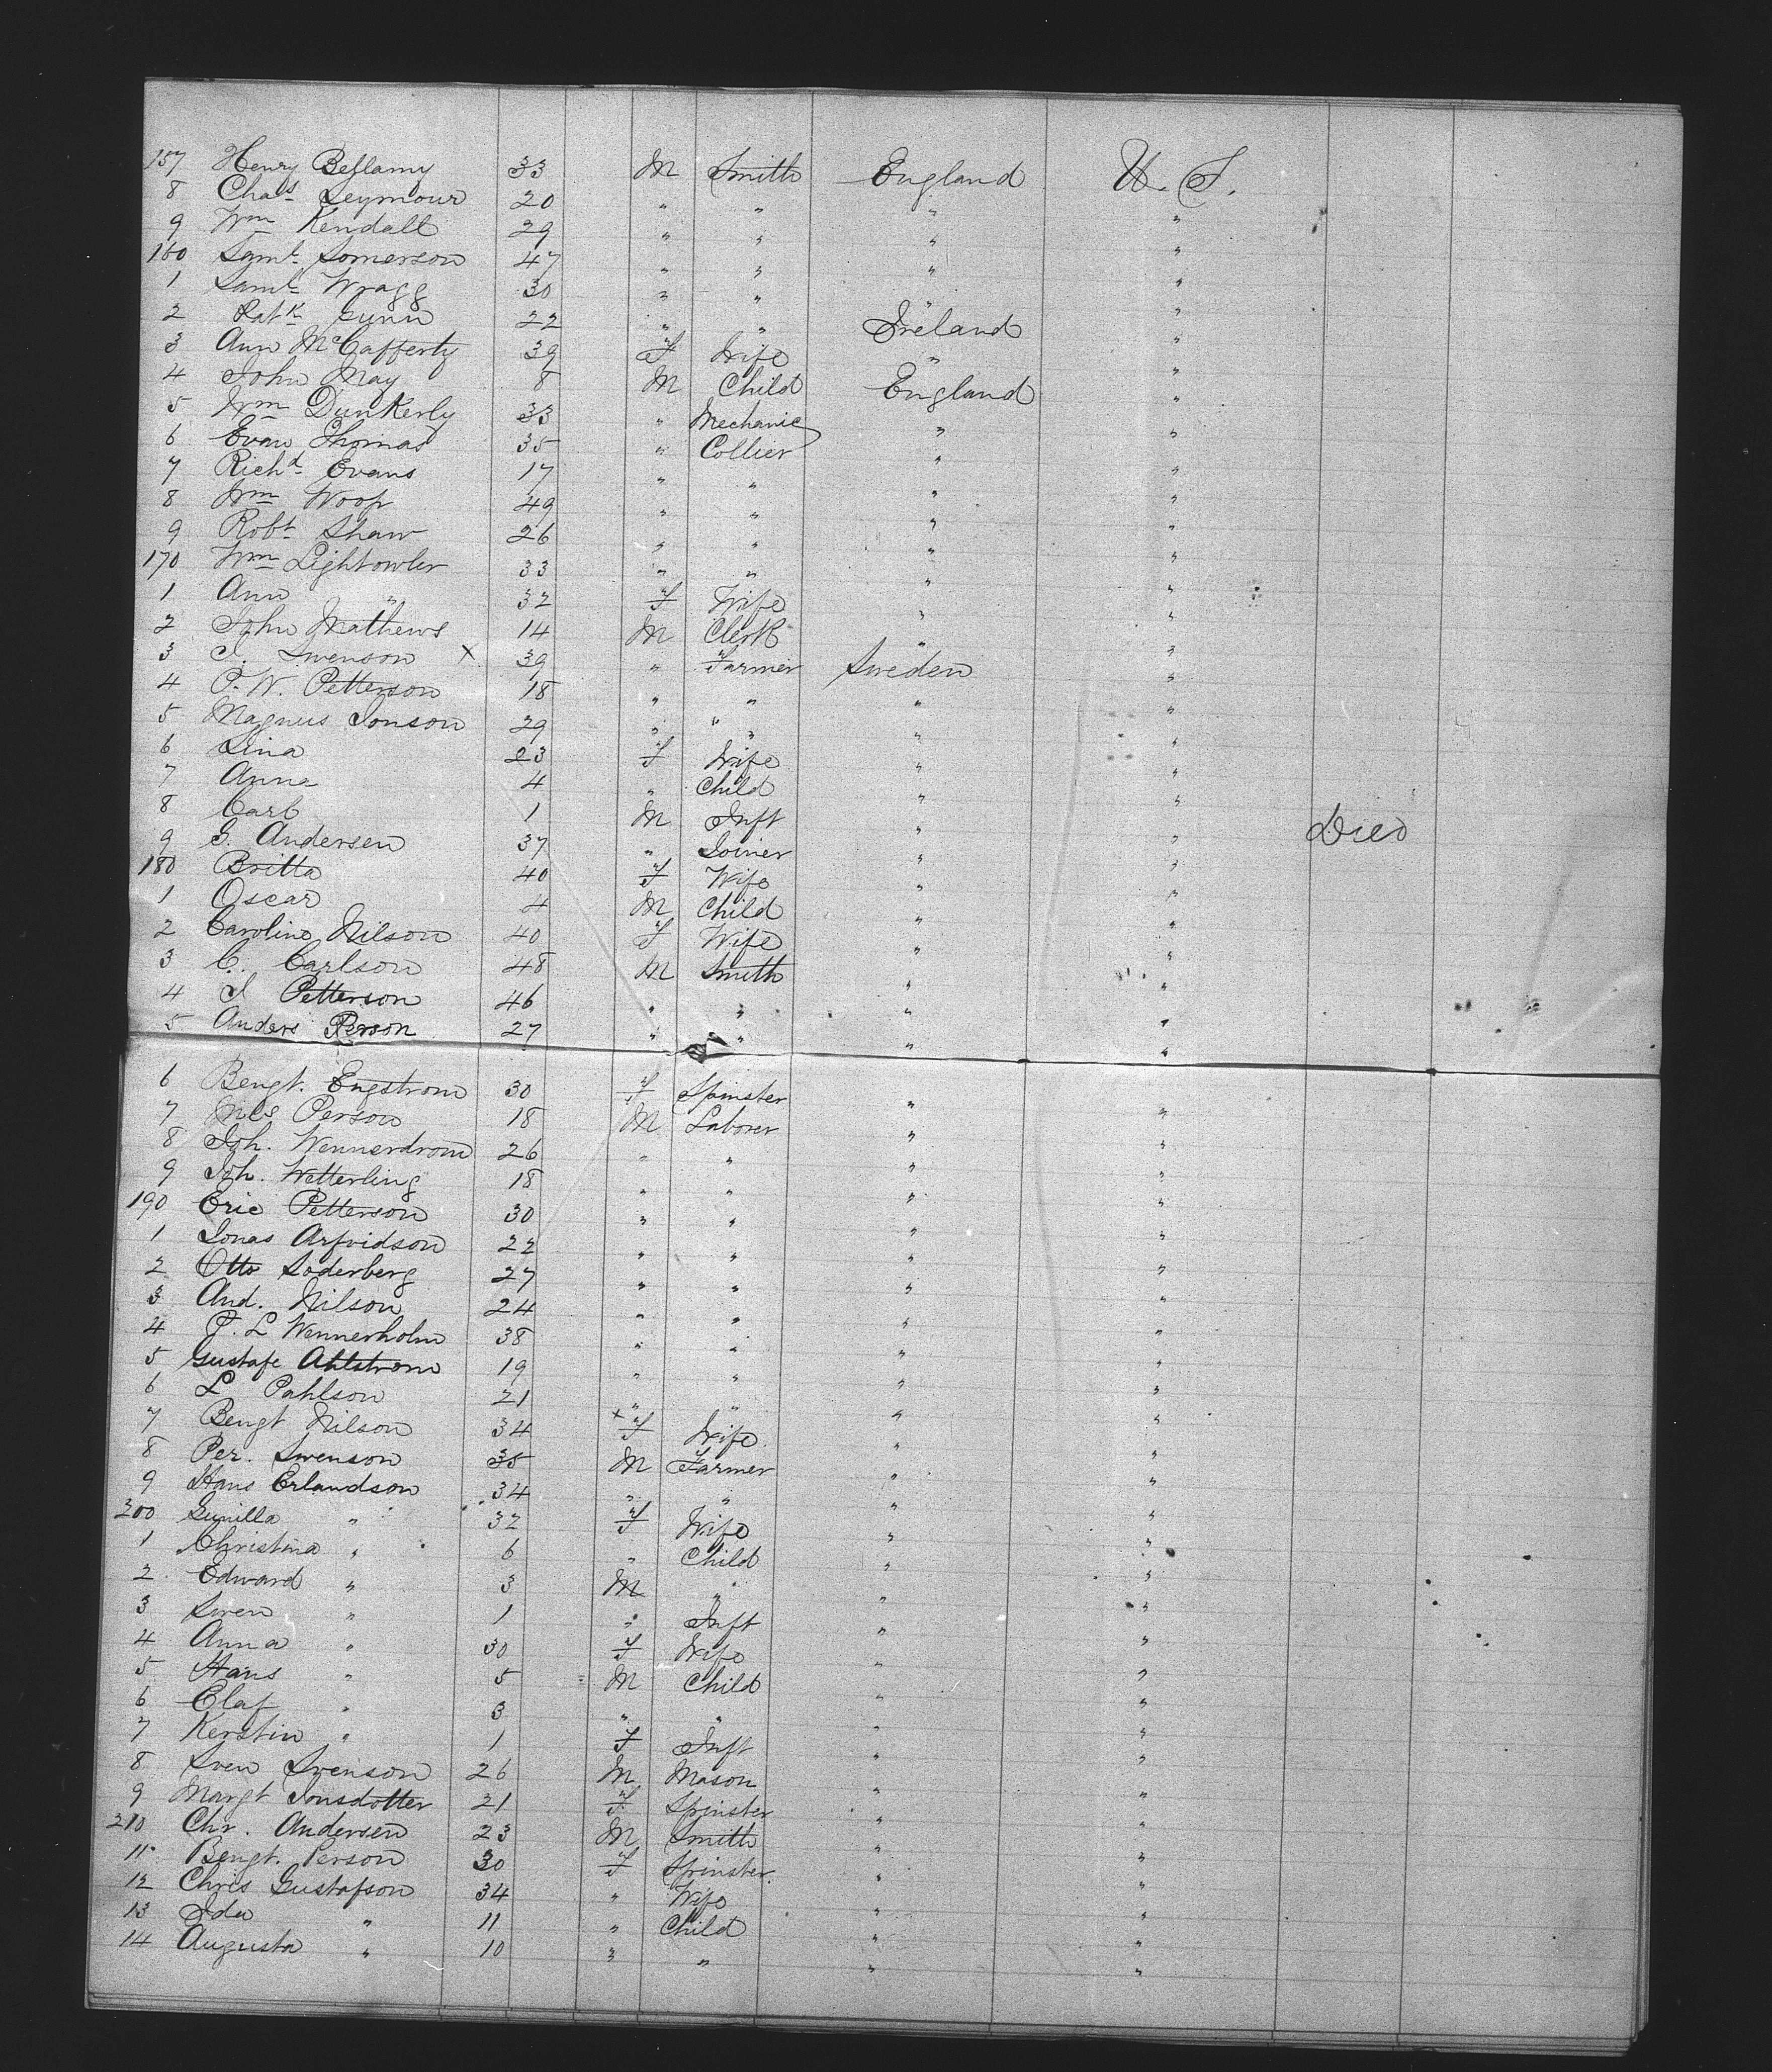 157 Henry Bellamy 33 M Smith England U. S.
8 Chas Seymour 20 " " " "
9 Wm Kendall 29 " " " "
160 Saml Somerson 47 " " " "
1 Saml Wragg 30 " " " "
2 Patk Gunn 22 " " Ireland "
3 Ann McCafferty 39 F Wife " "
4 John May 8 M Child England "
5 Wm Dunkerly 33 " Mechanic " "
6 Evan Thomas 35 " Collier " "
7 Richd Evans 17 " " " "
8 Wm Woop 49 " " " "
9 Robt Shaw 26 " " " "
170 Wm Lightowler 33 " " " "
1 Ann " 32 F Wife " "
2 John Mathews 14 M Clerk " "
3 J. Swenson X 39 " Farmer Sweden "
4 P. W. Petterson 18 " " " "
5 Magnus Jonson 29 " " " "
6 Lina 23 F Wife " "
7 Anna 4 " Child " "
8 Carl 1 M Inft " " Died
9 G. Andersen 37 " Joiner " "
180 Britta 40 F Wife " "
1 Oscar 4 M Child " "
2 Caroline Nilson 40 F Wife " "
3 C. Carlson 48 M Smith " "
4 J Petterson 46 " " " "
5 Anders Person 27 " " " "
6 Bengt. Engstrom 30 F Spinster " "
7 Nils Person 18 M Laborer " "
8 Joh. Wennerdrom 26 " " " "
9 Joh. Wetterling 18 " " " "
190 Eric Petterson 30 " " " "
1 Jonas Arfvidson 22 " " " "
2 Otto Soderberg 27 " " " "
3 And. Nilson 24 " " " "
4 P. L Wennerholm 38 " " " "
5 Gustafe Ahlstrom 19 " " " "
6 L Pahlson 21 " " " "
7 Bengt Nilson 34 x F Wife " "
8 Per. Swenson 35 M Farmer " "
9 Hans Erlandson 34 " " " "
200 Gunilla " 32 F Wife " "
1 Christina " 6 " Child " "
2 Edward " 3 M " " "
3 Swen " 1 " Inft " "
4 Anna " 30 F Wife " "
5 Hans " 5 M Child " "
6 Olaf " 3 " " " "
7 Kerstin " 1 F Inft " "
8 Sven Svenson 26 M Mason " "
9 Margt Jonsdotter 21 F Spinster " "
210 Chr. Andersen 23 M Smith " "
11 Bengt. Person 30 F Spinster " "
12 Chris Gustafson 34 " Wife " "
13 Ida " 11 " Child " "
14 Augusta " 10 " " " "